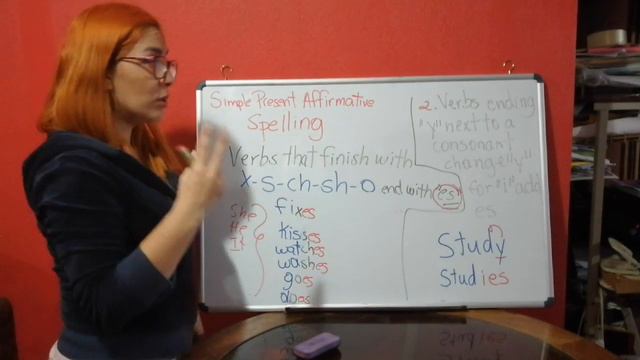 Simple Present Affirmative
Spelling
Verbs that finish with
x-s-ch-sh-o end with "es"
She
He
It
fixes
kisses
watches
washes
goes
does
2. Verbs ending
"y" next to a
consonant
change "y"
for "i" add
es
Study
studies